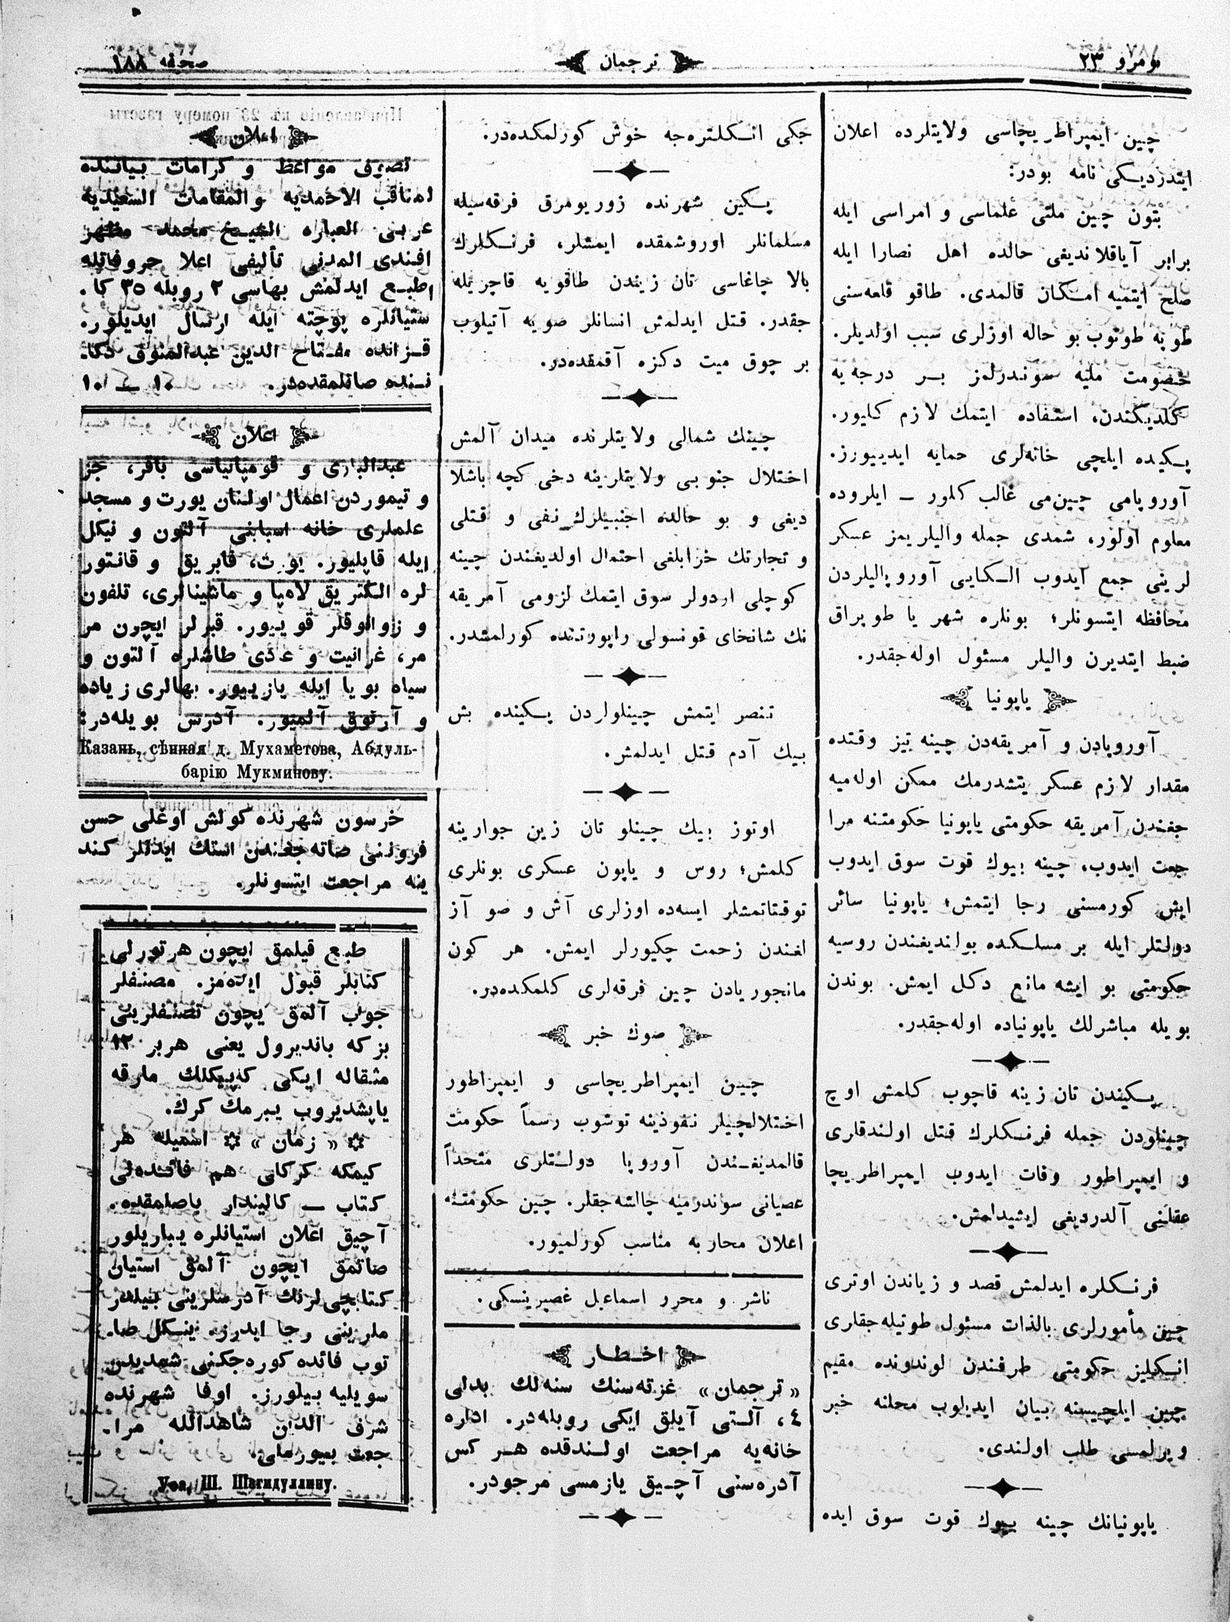 نومرو ٢٣
ترجمان
صحيفه ١٨٨
چين ايمپراطريچاسى ولايتلرده اعلان
ايتدرديكى نامه بودر:
بتون چين ملتى علماسى و امراسى ايله
برابر آياقلانديغى حالده اهل نصارا ايله
صلح ايتميه امكان قالمدى. طاقو قلعه‌سنى
طوپه طوتوب بو حاله اوزلرى سبب اولديلر.
خصومت مليه سوندرلمز بر درجه‌يه
كلديكندن، استفاده ايتمك لازم كليور.
پكيده ايلچى خانه‌لرى حمايه ايدييورز.
آوروپامى چين‌مى غالب كلور ــ ايلروده
معلوم اولور، شمدى جمله واليلريمز عسكر
لرينى جمع ايدوب الكايى آوروپاليلردن
محافظه ايتسونلر؛ بونلره شهر يا طوپراق
ضبط ايتديرن واليلر مسئول اوله‌جقدر.
ياپونيا
آوروپادن و آمريقه‌دن چينه تيز وقتده
مقدار لازم عسكر يتشدرمك ممكن اوله‌ميه
جغندن آمريقه حكومتى ياپونيا حكومتنه مرا
جعت ايدوب، چينه بيوك قوت سوق ايدوب
ايش كورمسنى رجا ايتمش؛ ياپونيا سائر
دولتلر ايله بر مسلكده بولنديغندن روسيه
حكومتى بو ايشه مانع دكل ايمش. بوندن
بويله مباشرلك ياپونياده اوله‌جقدر.
پكيندن تان زينه قاچوب كلمش اوچ
چينلودن جمله فرنكلرك قتل اولندقلرى
و ايمپراطور وفات ايدوب ايمپراطريچا
عقلنى آلدرديغى ايشيدلمش.
فرنكلره ايدلمش قصد و زياندن اوترى
چين مأمورلرى بالذات مسئول طوتيله‌جقلرى
انكليز حكومتى طرفندن لوندونده مقيم
چين ايلچيسنه بيان ايديلوب محلنه خبر
ويرلمسى طلب اولندى.
ياپونيانك چينه بيوك قوت سوق ايده
جكى انكلتره‌جه خوش كورلمكده‌در.
پكين شهرنده زوريومرق فرقه‌سيله
مسلمانلر اوروشمقده ايمشلر، فرنكلرك
بالا چاغاسى تان زيندن طاقويه قاچريله
جقدر. قتل ايدلمش انسانلر صويه آتيلوب
بر چوق ميت دكزه آقمقده‌در.
چينك شمالى ولايتلرنده ميدان آلمش
اختلال جنوبى ولايتلرينه دخى كچه باشلا
ديغى و بو حالده اجنبيلرك نفى و قتلى
و تجارتك خرابلغى احتمال اولديغندن چينه
كوچلى اردولر سوق ايتمك لزومى آمريقه
نك شانخاى قونسولى راپورتنده كورلمشدر.
تنصر ايتمش چينلولردن پكينده بش
بيك آدم قتل ايدلمش.
اوتوز بيك چينلو تان زين جوارينه
كلمش؛ روس و ياپون عسكرى بونلرى
توقتاتمشلر ايسه‌ده اوزلرى آش و صو آز
لغندن زحمت چكيورلر ايمش. هر كون
مانجوريادن چين فرقه‌لرى كلمكده‌در.
صوك خبر
چين ايمپراطريچاسى و ايمپراطور
اختلالچيلر نفوذينه توشوب رسماً حكومت
قالمديغندن آوروپا دولتلرى متحداً
عصيانى سوندرميه چالشه‌جقلر. چين حكومتنه
اعلان محاربه مناسب كورلميور.
ناشر و محرر اسماعيل غصپرينسكى.
اخطار
«ترجمان» غزته‌سنك سنه‌لك بدلى
٤، آلتى آيلق ايكى روبله‌در. اداره
خانه‌يه مراجعت اولندقده هر كس
آدره‌سنى آچيق يازمسى مرجودر.
اعلان
تصوف مواعظ و كرامات بياننده
لمناقب الاحمديه والمقامات السعيديه
عربى العباره الشيخ محمد مظهر
افندى المدنى تأليفى اعلا حروفاتله
طبع ايدلمش بهاسى ٢ روبله ٣٥ كا.
ستيانلره پوچته ايله ارسال ايديلور.
قزانده مفتاح الدين عبدالمنوف دكا
ننده صاتلمقده‌در. ١٠ ــ ١٠
اعلان
عبدالبارى و قومپانياسى باقر، جز
و تيموردن اعمال اولنان يورت و مسجد
علملرى خانه اسبابنى آلتون و نيكل
ايله قاپليور. يورت، فابريق و قانتور
لره الكتريق لامپا و ماشينالرى، تلفون
و زوانوقلر قوييور. قبرلر ايچون مر
مر، غرانيت و عادى طاشلره آلتون و
سياه بويا ايله يازييور. بهالرى زياده
و آرتوق آلميور. آدرس بويله‌در:
Казань, сѣнная д. Мухаметова, Абдуль-
барію Мукминову.
خرسون شهرنده كولش اوغلى حسن
فرونى صاته‌جغندن استك ايدنلر كند
ينه مراجعت ايتسونلر.
طبع قيلمق ايچون هرتورلى
كتابلر قبول ايده‌مز. مصنفلر
جواب آلمق ايچون تصنفلرينى
بزكه بانديرول يعنى هربر ١٢
مثقاله ايكى كه‌پيكلك مارقه
ياپشديروب ييبرمك كرك.
«زمان» اسميله هر
كيمكه كركلى هم فائده‌لى
كتاب ــ كاليندار ياصلمقده.
آچيق اعلان استيانلره يباريلور
صاتمق ايچون آلمق استيان
كتابچى‌لرنك آدرسلرينى بيلدر
ملرينى رجا ايدرز. ينكل صا
توب فائده كوره‌جكنى شمديدن
سويليه بيلورز. اوفا شهرنده
شرف الدين شاهدالله مرا
جعت بيورملى.
Уфа, Ш. Шагидуллину.